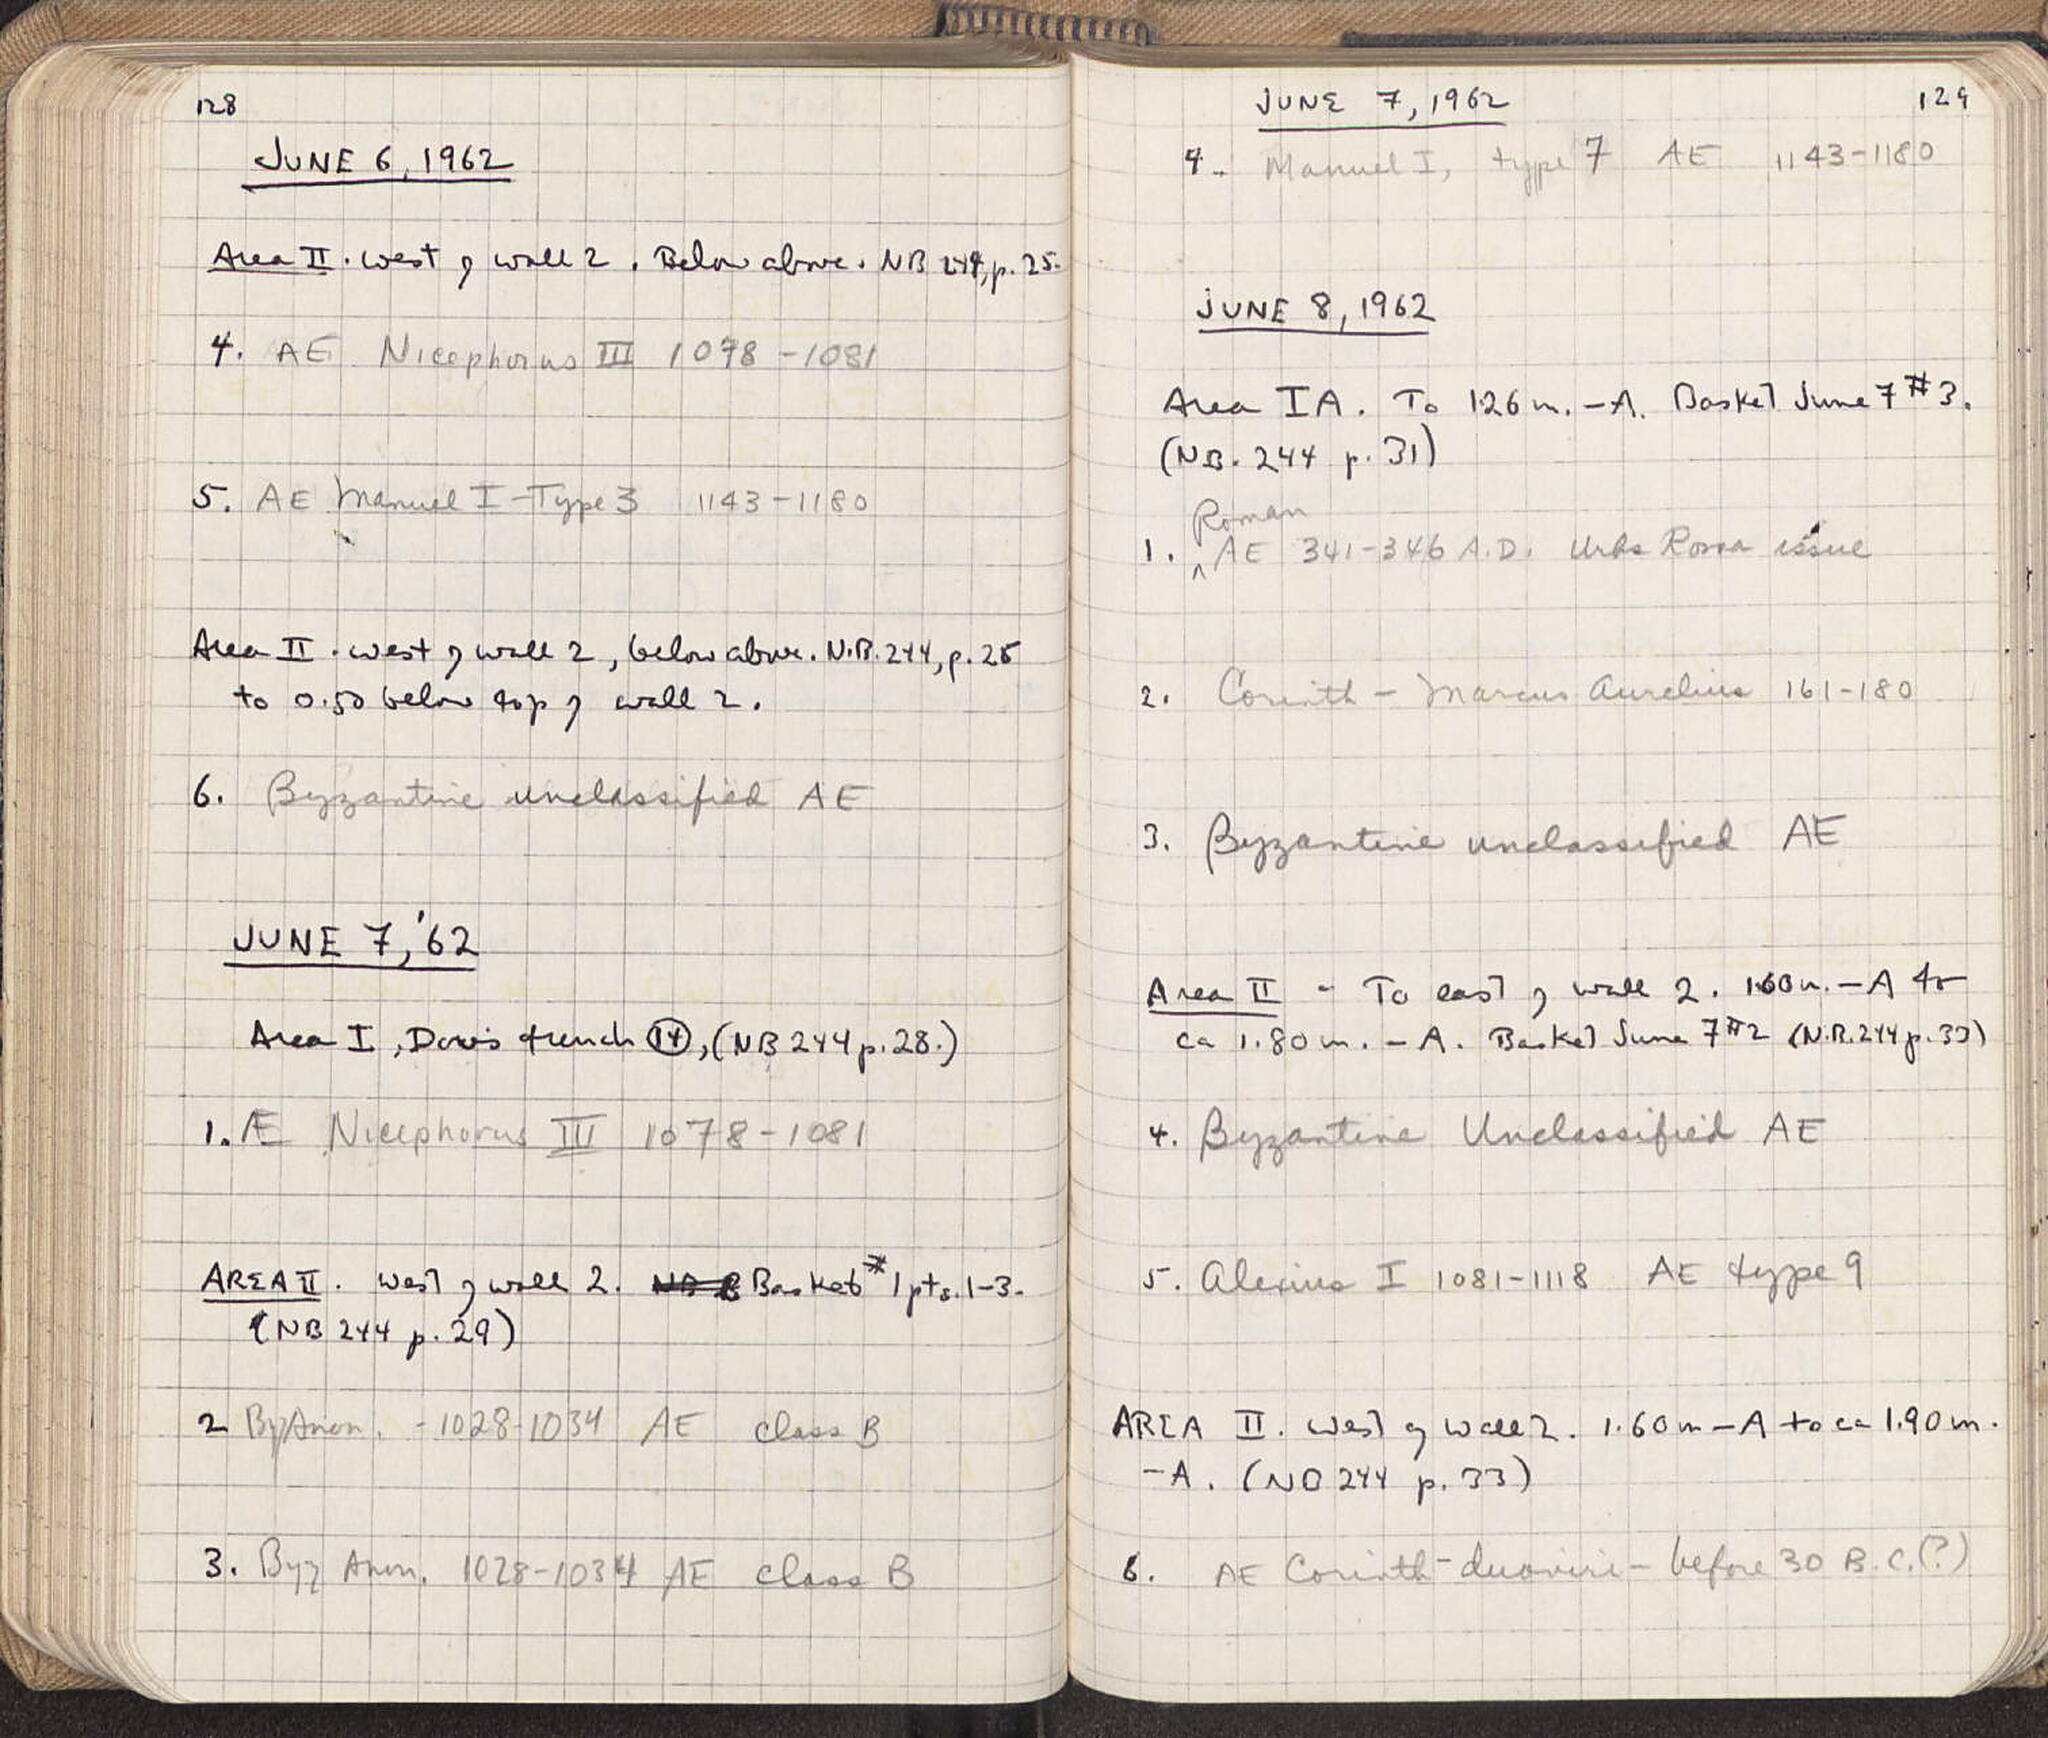 128
JUNE 6, 1962
Area II. west of wall 2. Below above. NB 244, p. 25.
4. AE Nicephorus III 1078-1081
5. AE Manuel I-Type 3 1143-1180
Area II. west of wall 2, below above. N.B. 244, p. 25
to 0.50 below top of wall 2.
6. Byzantine unclassified AE
JUNE 7, '62
Area I, trench 14, (NB 244 p. 28.)
1. Æ Nicephorus III 1078-1081
AREA II. West of wall 2. Basket #1 pts. 1-3.
(NB 244 p. 29)
2 Byz Anon. -1028-1034 AE class B
3. Byz Anon. 1028-1034 AE class B
129
JUNE 7, 1962
4. Manuel I, type 7 AE 1143-1180
JUNE 8, 1962
Area IA. To 1.26 m. -A. Basket June 7 #3.
(NB. 244 p. 31)
Roman
1. ^ AE 341-346 A.D. Urbs Roma issue
2. Corinth - Marcus Aurelius 161-180
3. Byzantine unclassified AE
Area II - To east of wall 2. 1.60 m. -A to
ca 1.80 m. -A. Basket June 7 #2 (N.B. 244 p. 33)
4. Byzantine Unclassified AE
5. Alexius I 1081-1118 AE type 9
AREA II. West of wall 2. 1.60 m -A to ca 1.90 m.
-A. (NB 244 p. 33)
6. AE Corinth - duoviri - before 30 B.C.(?)